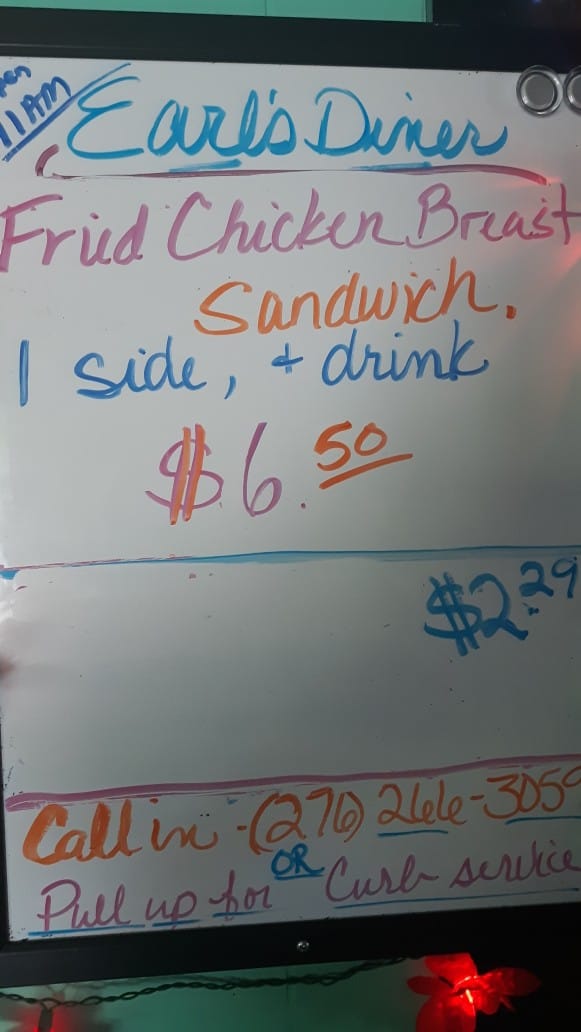 11 AM
Earl's Diner
Fried Chicken Breast
Sandwich.
1 side, + drink
$6.50
$2.29
Call in - (276) 266-3059
OR
Pull up for Curb service